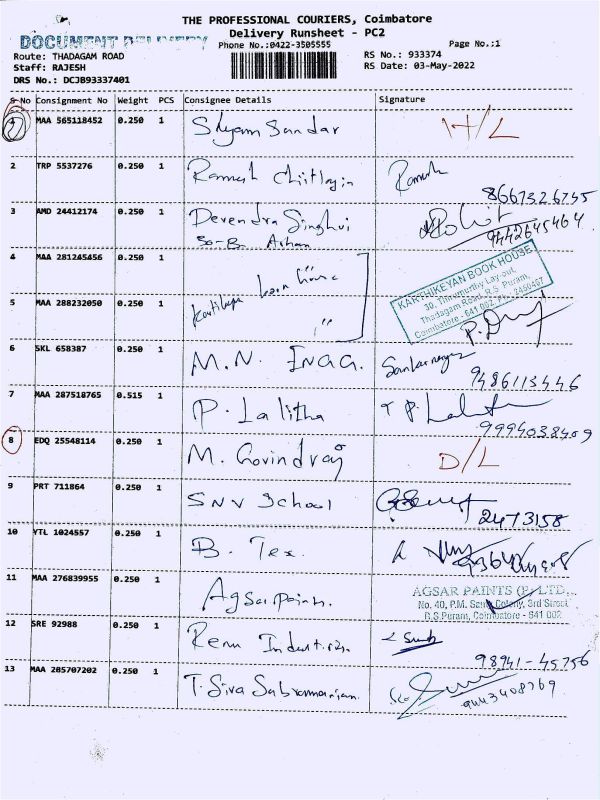 THE PROFESSIONAL COURIERS, Coimbatore
DOCUMENT DELIVERY
Delivery Runsheet - PC2
Phone No.:0422-3505555
Page No.:1
Route: THADAGAM ROAD
RS No.: 933374
Staff: RAJESH
RS Date: 03-May-2022
DRS No.: DCJB93337401
S No Consignment No Weight PCS Consignee Details Signature
1 MAA 565118452 0.250 1 Shyam Sundar
2 TRP 5537276 0.250 1 Ramesh Ramesh
8667326745
3 AMD 24412174 0.250 1 Devendra Singhvi Rohit
9442645464
4 MAA 281245456 0.250 1
KARTHIKEYAN BOOK HOUSE
30, Thirumurthy Lay-out,
Thadagam Road, R.S. Puram,
Coimbatore - 641 002. Ph: 2450467
5 MAA 288232050 0.250 1
6 SKL 658387 0.250 1 M. N.
9486113446
7 MAA 287518765 0.515 1 P. Lalitha
9994038409
8 EDQ 25548114 0.250 1 M. Govindraj D/L
9 PRT 711864 0.250 1 SNV School
2473158
10 VTL 1024557 0.250 1 B. Tex.
11 MAA 276839955 0.250 1 Agsar paints.
AGSAR PAINTS (P) LTD.,
No. 40, P.M. Samy Colony, 3rd Street
R.S.Puram, Coimbatore - 641 002
12 SRE 92988 0.250 1 Renu Industries
98941-45756
13 MAA 285707202 0.250 1 T. Siva Subramaniam.
9443408769